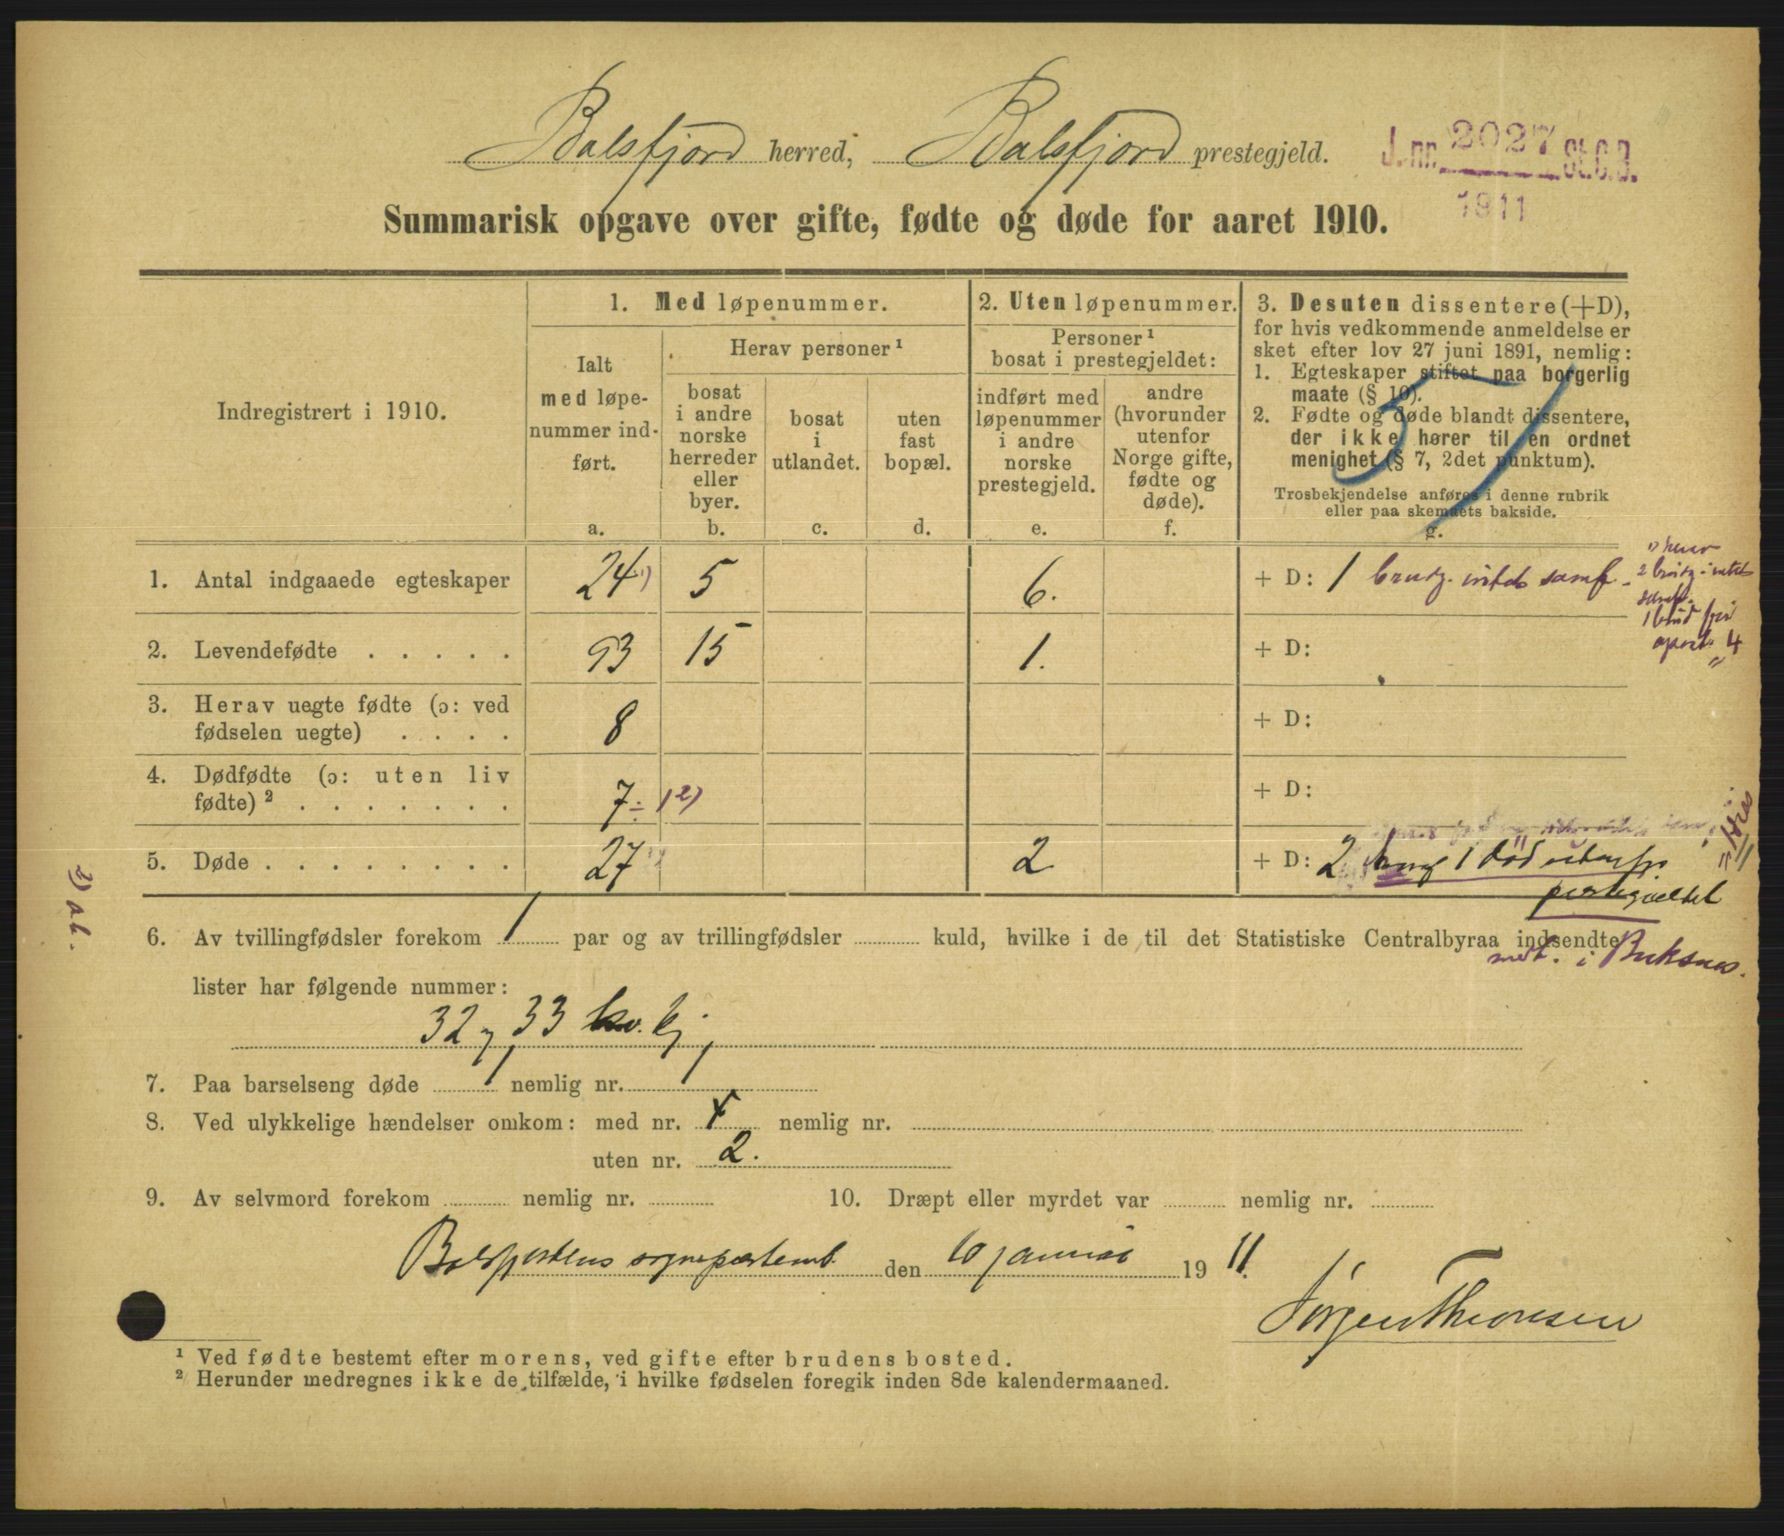 Balsfjord herred, Balsfjord prestegjeld.
J.nr. 2027 St.C.B.
1911
Summarisk opgave over gifte, fødte og døde for aaret 1910.
Indregistrert i 1910.
1. Med løpenummer.
Ialt med løpe-
nummer ind-
ført.
a.
Herav personer ¹
bosat
i andre
norske
herreder
eller
byer.
b.
bosat
i
utlandet.
c.
uten
fast
bopæl.
d.
2. Uten løpenummer.
Personer ¹
bosat i prestegjeldet:
indført med
løpenummer
i andre
norske
prestegjeld.
e.
andre
(hvorunder
utenfor
Norge gifte,
fødte og
døde).
f.
3. Desuten dissentere (+D),
for hvis vedkommende anmeldelse er
sket efter lov 27 juni 1891, nemlig:
1. Egteskaper stiftet paa borgerlig
maate (§ 10).
2. Fødte og døde blandt dissentere,
der ikke hører til en ordnet
menighet (§ 7, 2det punktum).
Trosbekjendelse anføres i denne rubrik
eller paa skemaets bakside.
g.
37
1. Antal indgaaede egteskaper 24 ¹) 5 6. + D: 1 brudg. samf.
¹) herav
2 brudg.
1 brud fri
apost. 4
2. Levendefødte . . . . . 93 15 1. + D:
3. Herav uegte fødte (ɔ: ved
fødselen uegte) . . . . 8 + D:
4. Dødfødte (ɔ: uten liv
fødte) ² . . . . . . . 7 ÷ 1 ²) + D:
5. Døde . . . . . . . . 27 2 + D: 2 1 død utenfor
prestegjeldet
medt. i Buksnes.
²) ab.
6. Av tvillingfødsler forekom 1 par og av trillingfødsler kuld, hvilke i de til det Statistiske Centralbyraa indsendte
lister har følgende nummer:
32 og 33 kv. kj.
7. Paa barselseng døde 1 nemlig nr. 1
8. Ved ulykkelige hændelser omkom: med nr. nemlig nr.
uten nr. 2.
9. Av selvmord forekom nemlig nr. 10. Dræpt eller myrdet var nemlig nr.
Balsfjordens sogneprestemb. den 10 januar 1911.
Jørgen Thomsen
¹ Ved fødte bestemt efter morens, ved gifte efter brudens bosted.
² Herunder medregnes ikke de tilfælde, i hvilke fødselen foregik inden 8de kalendermaaned.